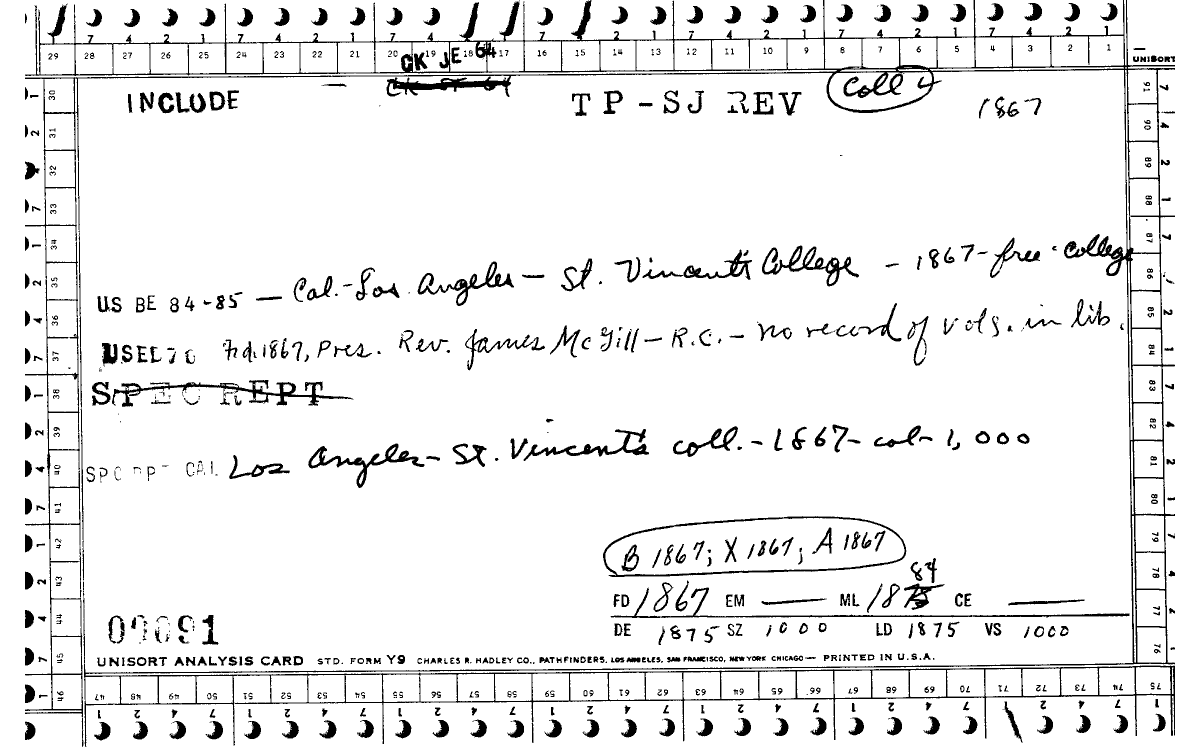 7 4 2 1 7 4 2 1 7 4 2 1 7 4 2 1 7 4 2 1 7 4 2 1 7 4 2 1
29 28 27 26 25 24 23 22 21 20 19 18 17 16 15 14 13 12 11 10 9 8 7 6 5 4 3 2 1
UNISORT
CK JE 64
CK ST 64
INCLUDE — TP-SJ REV Coll 4 1867
US BE 84-85 — Cal.-Los Angeles — St. Vincent's College — 1867-free-college
USEL76 Fd.1867, Pres. Rev. James McGill — R.C. — no record of vols. in lib.
SPEC REPT
SPC RPT CAL Los Angeles — St. Vincent's coll. - 1867 - col - 1,000
B 1867; X 1867; A 1867
84
FD 1867 EM — ML 1875 CE —
DE 1875 SZ 1000 LD 1875 VS 1000
09091
UNISORT ANALYSIS CARD STD. FORM Y9 CHARLES R. HADLEY CO., PATHFINDERS, LOS ANGELES, SAN FRANCISCO, NEW YORK CHICAGO — PRINTED IN U.S.A.
30 31 32 33 34 35 36 37 38 39 40 41 42 43 44 45 46
91 90 89 88 87 86 85 84 83 82 81 80 79 78 77 76 75
47 48 49 50 51 52 53 54 55 56 57 58 59 60 61 62 63 64 65 66 67 68 69 70 71 72 73 74
1 2 4 7 1 2 4 7 1 2 4 7 1 2 4 7 1 2 4 7 1 2 4 7 1 2 4 7 1